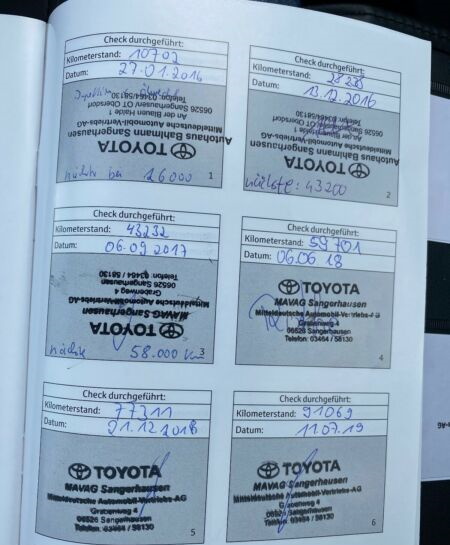 Check durchgeführt:
Kilometerstand: 10702
Datum: 27.01.2016
Autohaus Bahlmann Sangerhausen
TOYOTA
Mitteldeutsche Automobil-Vertriebs-AG
An der Blauen Hütte 1
06526 Sangerhausen/ OT Obersdorf
Telefon: 03464/58130
nächste bei 26000
1
Check durchgeführt:
Kilometerstand: 28285
Datum: 13.12.2016
TOYOTA
Autohaus Bahlmann Sangerhausen
Mitteldeutsche Automobil-Vertriebs-AG
06526 Sangerhausen/ OT Obersdorf
Telefon: 03464/58130
nächste: 43200
2
Check durchgeführt:
Kilometerstand: 43232
Datum: 06.09.2017
TOYOTA
MAVAG Sangerhausen
Mitteldeutsche Automobil-Vertriebs-AG
Grabenweg 4
06526 Sangerhausen
Telefon: 03464 / 58130
nächste 58.000 km
3
Check durchgeführt:
Kilometerstand: 59701
Datum: 06.06.18
TOYOTA
MAVAG Sangerhausen
Mitteldeutsche Automobil-Vertriebs-AG
Grabenweg 4
06526 Sangerhausen
Telefon: 03464 / 58130
4
Check durchgeführt:
Kilometerstand: 77311
Datum: 21.12.2018
TOYOTA
MAVAG Sangerhausen
Mitteldeutsche Automobil-Vertriebs-AG
Grabenweg 4
06526 Sangerhausen
Telefon: 03464 / 58130
5
Check durchgeführt:
Kilometerstand: 91069
Datum: 11.07.19
TOYOTA
MAVAG Sangerhausen
Mitteldeutsche Automobil-Vertriebs-AG
Grabenweg 4
06526 Sangerhausen
Telefon: 03464 / 58130
6